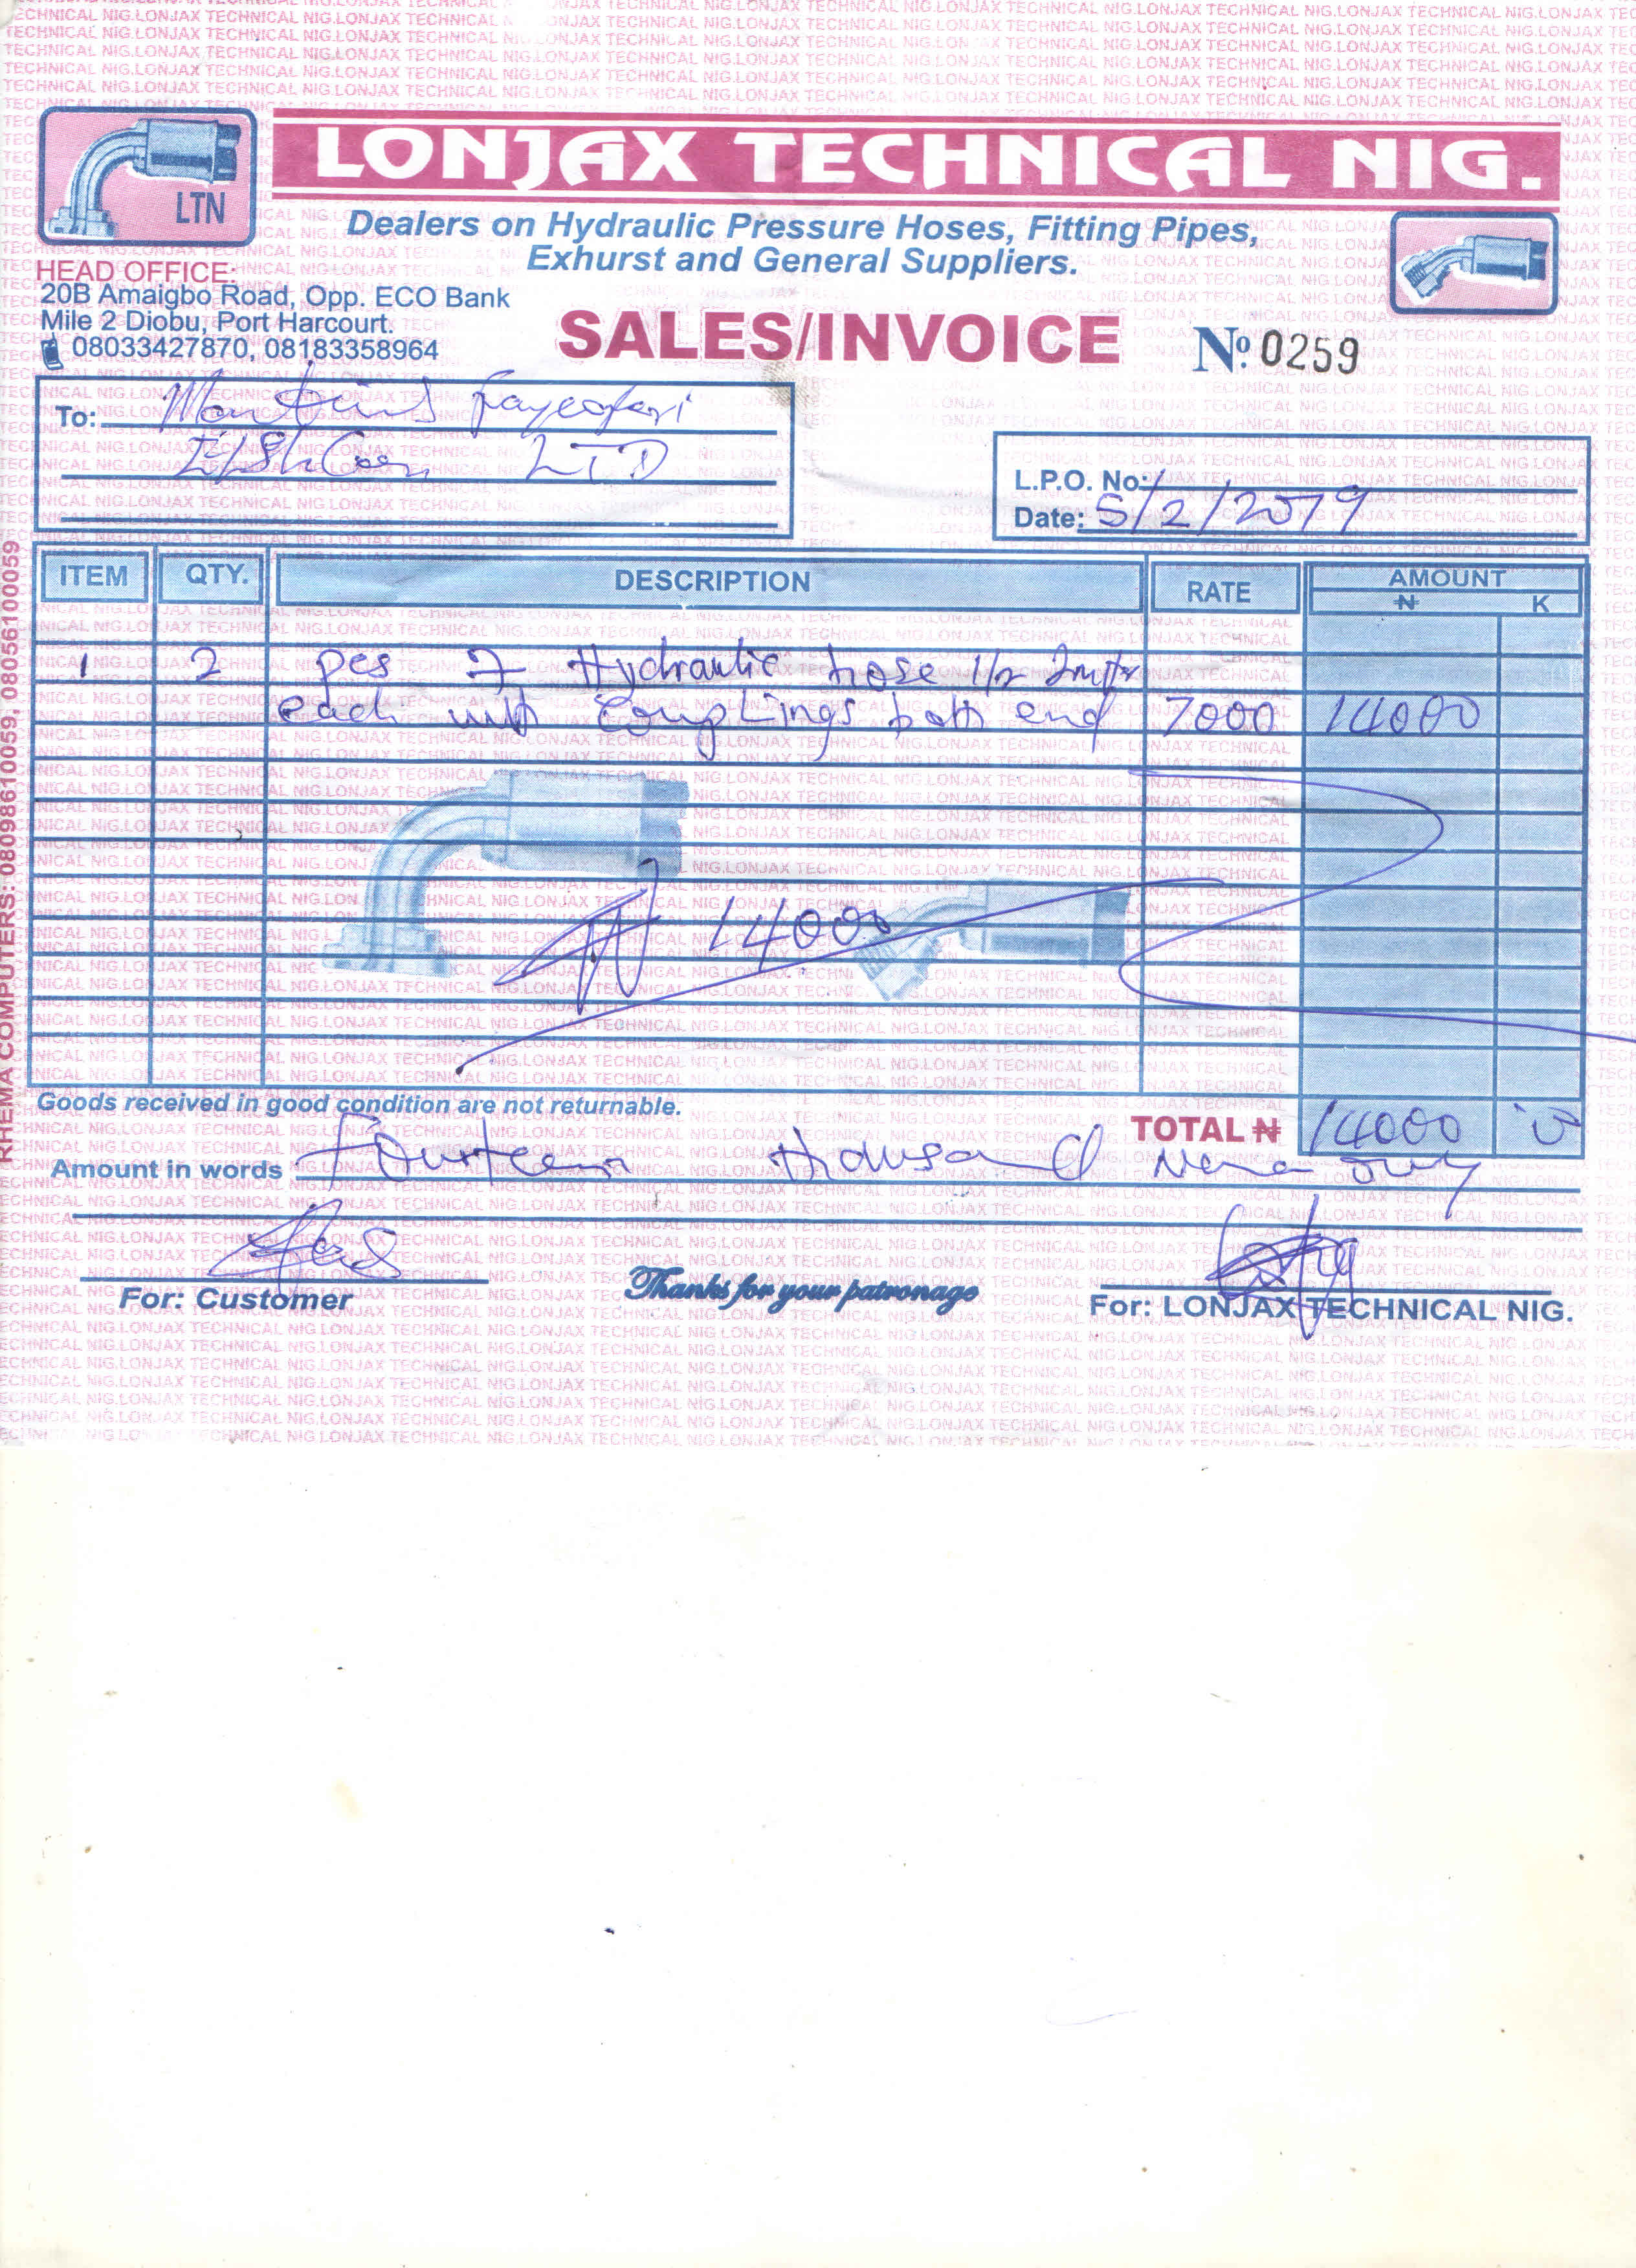 LONJAX TECHNICAL NIG.
LTN
Dealers on Hydraulic Pressure Hoses, Fitting Pipes,
Exhurst and General Suppliers.
HEAD OFFICE:
20B Amaigbo Road, Opp. ECO Bank
Mile 2 Diobu, Port Harcourt.
08033427870, 08183358964
SALES/INVOICE
Nº 0259
To:
LTD
L.P.O. No:
Date: 5/2/2019
ITEM QTY. DESCRIPTION RATE AMOUNT
₦ K
1 2 pcs of Hydraulic hose 1/2
each with couplings both end 7000 14000
14000
Goods received in good condition are not returnable.
TOTAL ₦ 14000
Amount in words Fourteen thousand Naira only
For: Customer
Thanks for your patronage
For: LONJAX TECHNICAL NIG.
RHEMA COMPUTERS: 08098610059, 08056100059